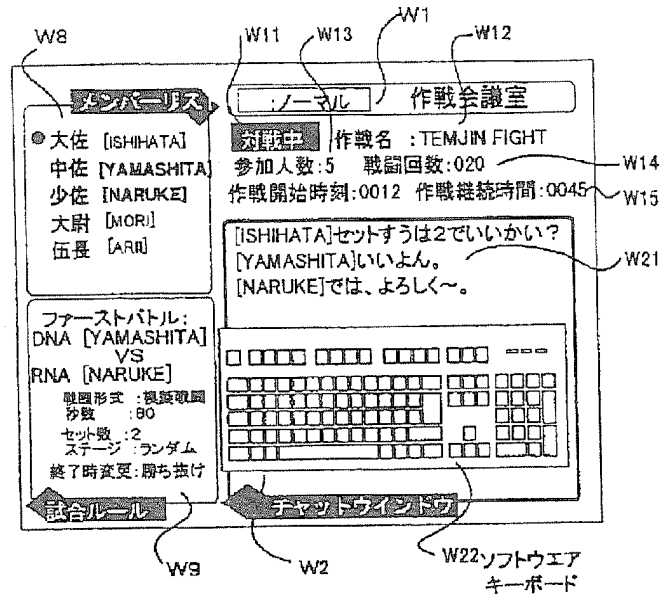 W8
W11
W13
W1
W12
メンバーリスト
:ノーマル
作戦会議室
大佐 [ISHIHATA]
中佐 [YAMASHITA]
少佐 [NARUKE]
大尉 [MORI]
伍長 [ARII]
対戦中 作戦名 :TEMJIN FIGHT
参加人数:5 戦闘回数:020
W14
作戦開始時刻:0012 作戦継続時間:0045
W15
[ISHIHATA]セットすうは2でいいかい?
[YAMASHITA]いいよん。
[NARUKE]では、よろしく~。
W21
ファーストバトル:
DNA [YAMASHITA]
VS
RNA [NARUKE]
戦闘形式 :模擬戦闘
秒数 :80
セット数 :2
ステージ :ランダム
終了時変更:勝ち抜け
試合ルール
チャットウインドウ
W9
W2
W22ソフトウエア
キーボード